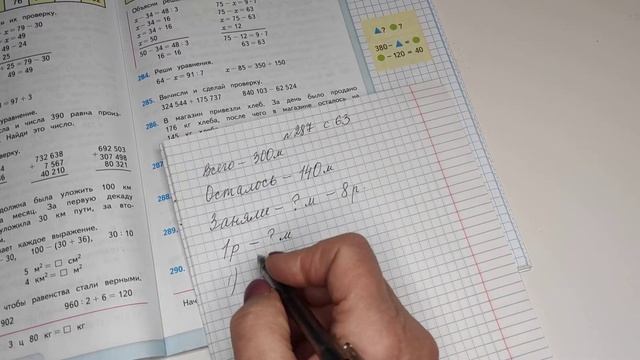 76
и их проверку.
x = 79 – 30
x = 49
49 – 24
25
25 = 79 – 30
49 = 49
x = 97 + 3
уравнение.
и числа 390 равна произ-
Найди это число.
проверку.
732 638
7 567
40 210
692 503
307 498
80 321
должна была уложить 100 км
месяц. За первую декаду
уложила 30 км пути, за вто-
каждое выражение.
30, 100 – (30 + 36), 30 : 10
5 м² = □ см²
4 км² = □ м²
чтобы равенства стали верными.
902
960 : 2 + 6 = 120
3 ц 80 кг = □ кг
Объясни
x – 34 = 48 : 3
x – 34 = 16
x = 34 + 16
x = 50
50 – 34 = 48 : 3
16 = 16
75 – x = 9 · 7
x = 75 – 63
x = 12
75 – 12 = 9 · 7
63 = 63
284. Реши уравнения.
64 – x = 91 : 7
x – 85 = 350 + 150
285. Вычисли и сделай проверку.
324 544 + 175 737
840 103 – 62 524
286. В магазин привезли хлеб. За день было продано
176 кг хлеба, после чего в магазине осталось на
145 кг
287
288.
289.
290.
Нач
? ?
380 – =
– 120 = 40
№287 с 63
Всего – 300м
Осталось – 140м
Заняли – ? м – 8р.
1р – ? м
1)